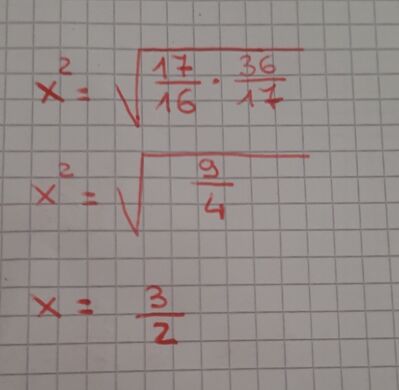 x² = √(17/16 · 36/17)
x² = √(9/4)
x = 3/2